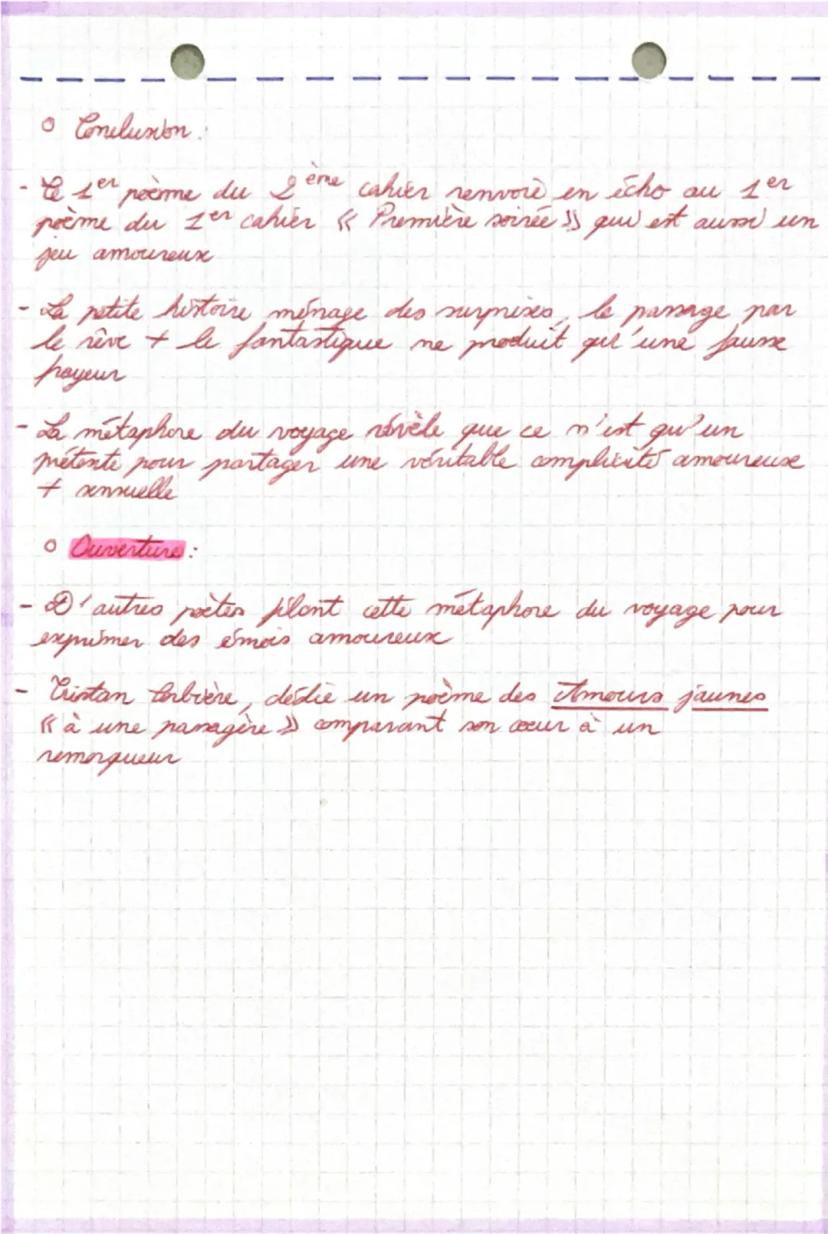 o Conclusion :
- Ce 1er poème du 2ème cahier renvoie en écho au 1er
poème du 1er cahier « Première soirée » qui est aussi un
jeu amoureux
- La petite histoire ménage des surprises, le passage par
le rêve + le fantastique ne produit qu'une fausse
frayeur
- La métaphore du voyage révèle que ce n'est qu'un
prétexte pour partager une véritable complicité amoureuse
+ sensuelle
o Ouverture :
- D'autres poètes filent cette métaphore du voyage pour
exprimer des émois amoureux
- Tristan Corbière, dédie un poème des Amours jaunes
« à une passagère » comparant son cœur à un
remorqueur